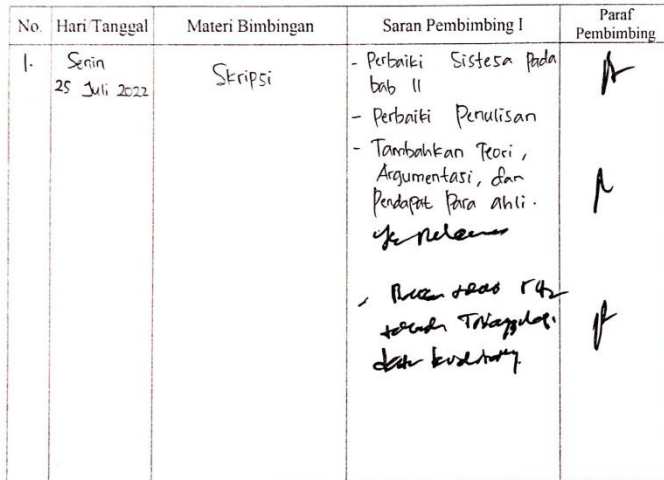 No. Hari/Tanggal Materi Bimbingan Saran Pembimbing I Paraf Pembimbing
1. Senin
25 Juli 2022
Skripsi
- Perbaiki Sistesa Pada
bab II
- Perbaiki Penulisan
- Tambahkan Teori,
Argumentasi, dan
Pendapat Para ahli.